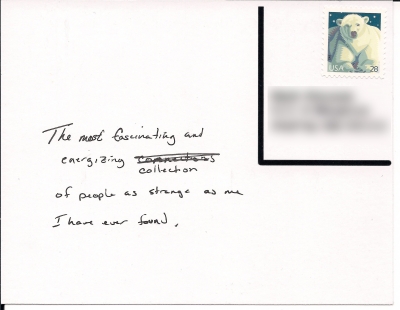 USA 28
The most fascinating and
energizing
collection
of people as strange as me
I have ever found.